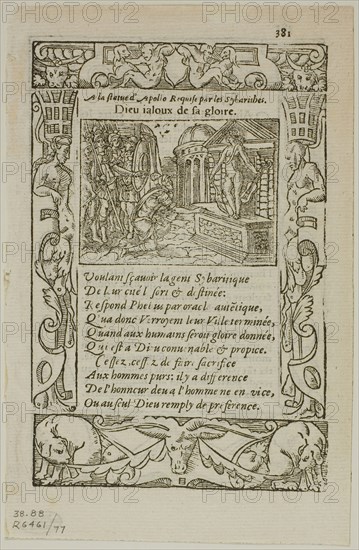 381
A la statue d'Apollo Requise par les Sybarites.
Dieu ialoux de sa gloire.
Voulant sçavoir la gent Sybaritique
De leur cité le sort & destinée:
Respond Phebus par oracle autētique,
Qua donc Verroyent leur Ville terminée,
Quand aux humains seroit gloire donnée,
Qui est a Dieu conuenable & propice.
Cessez, cessez de faire sacrifice
Aux hommes purs: il y a difference
De l'honneur deu a l'homme ne en vice,
Ou au seul Dieu remply de preference.
38.88
R6461/77